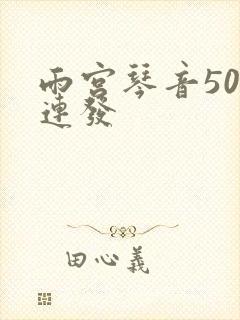 雨宮琴音50
連發
田心義